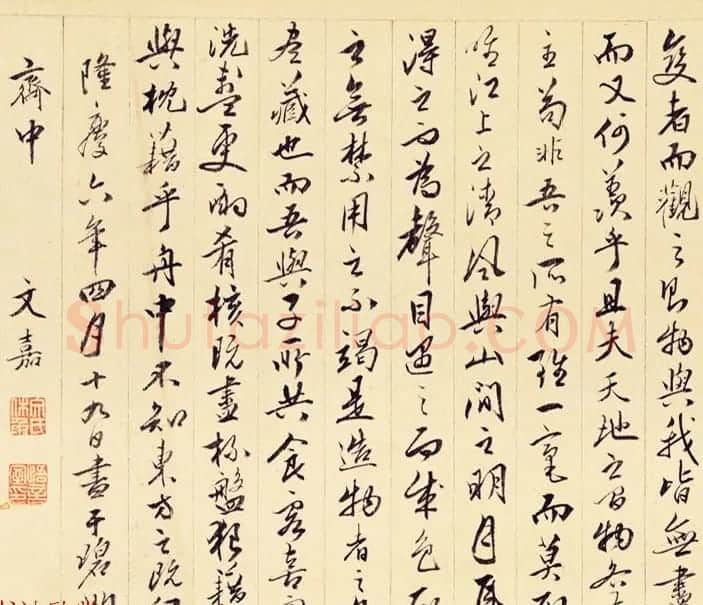 變者而觀之則物與我皆無盡
而又何羨乎且夫天地之間物各
主苟非吾之所有雖一毫而莫
唯江上之清風與山間之明月
得之而為聲目遇之而成色
之無禁用之不竭是造物者之
盡藏也而吾與子所共食客喜
洗盞更酌肴核既盡杯盤狼藉
與枕藉乎舟中不知東方之既
隆慶六年四月十九日書于碧
齋中 文嘉
Shufaziliao.COM